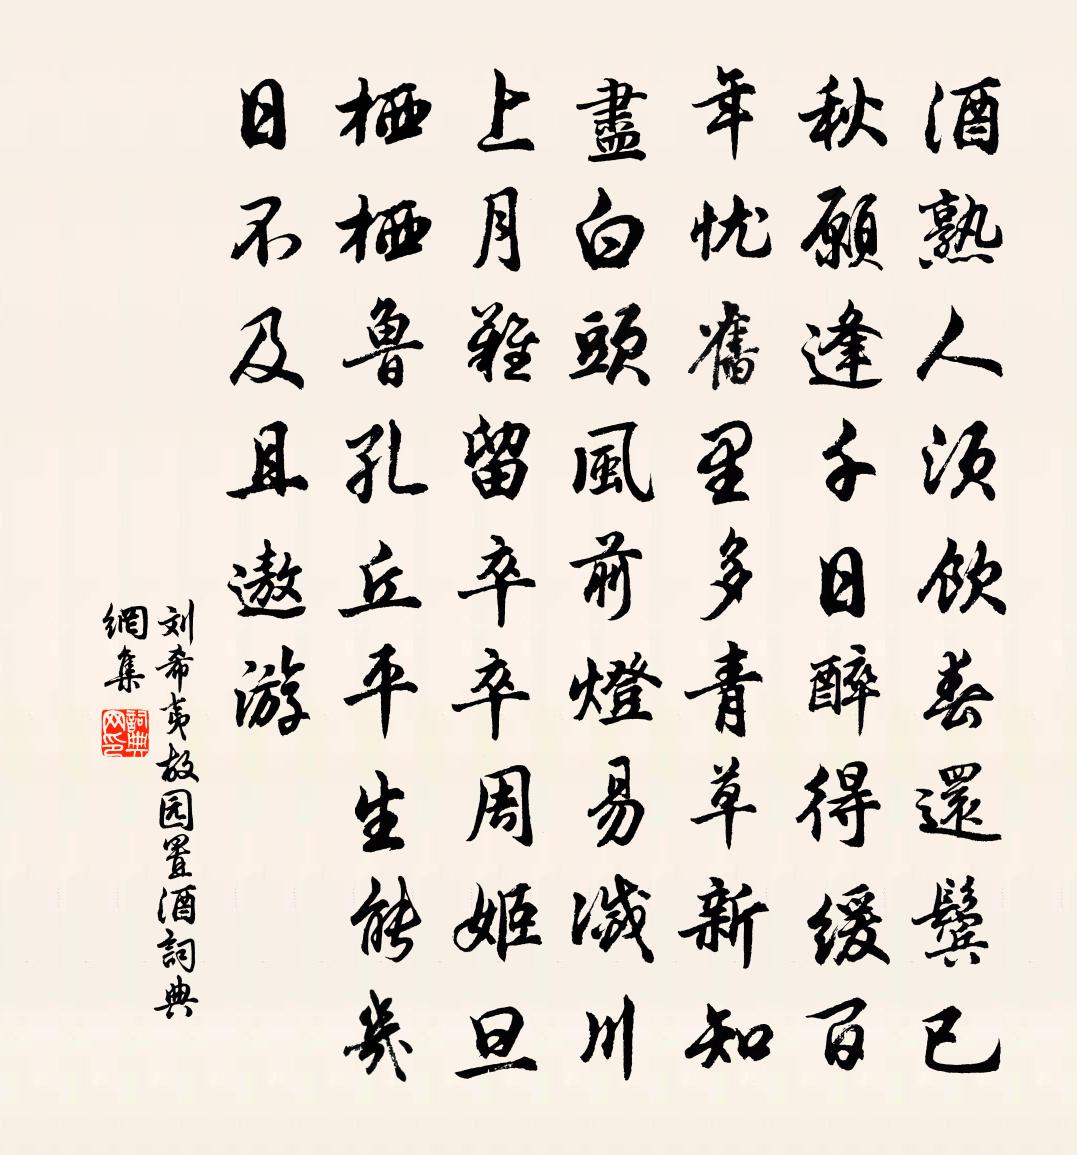 酒熟人須飲春還鬢已
秋願逢千日醉得緩百
年忧舊里多青草新知
盡白頭風前燈易滅川
上月難留卒卒周姬旦
栖栖魯孔丘平生能幾
日不及且遨游
刘希夷故园置酒詞典
網集
詞典
网印